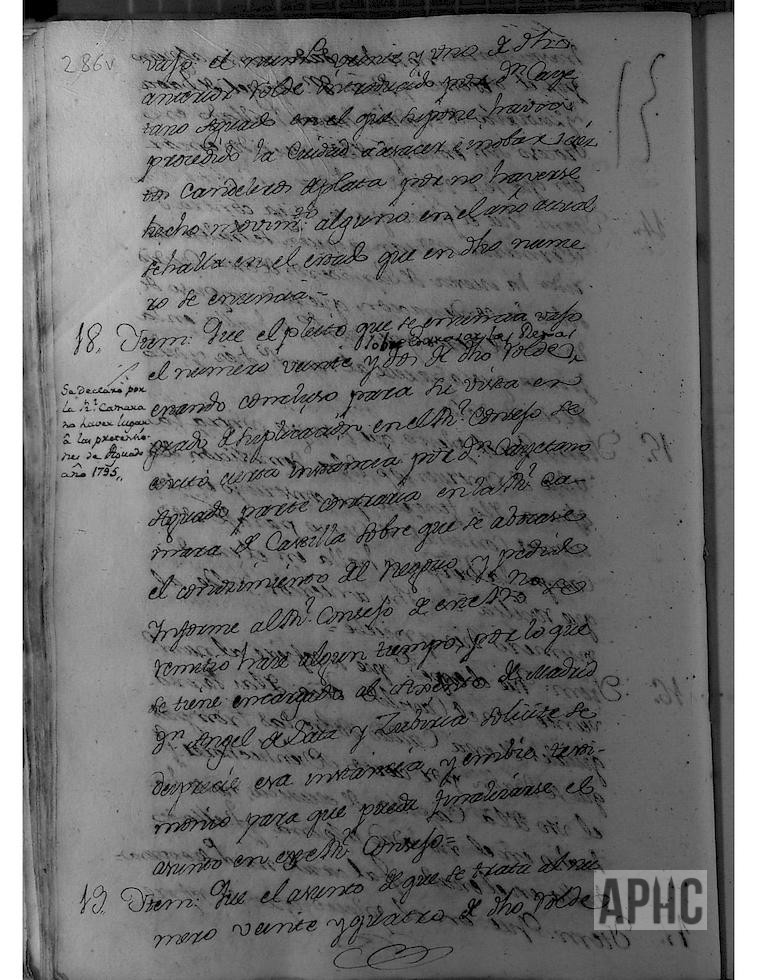 286v
vajo el numero veinte y uno de dho
anterior Rolde introducido por Dn. Caye
tano Aguado en el que supone havor
procedido la Ciudad a desacer e inobar ciér
tos Candeleros de plata por no haverse
hecho movimto. alguno en el año actual
se halla en el estado que en dho nume
ro se enuncia =
18. Item: Que el pleito que se enuncia vajo
el numero veinte y dos de dho Rolde,
estando concluso para su vista en
grado de suplicación en el Rl. Consejo se
excitó cierta instancia por Dn. Cayetano
Aguado parte contraria en la Rl. Ca-
mara de Castilla sobre que se abocase
el conocimiento del Negocio y pedido
Informe al Rl. Consejo de este Rno
remitió hace algun tiempo, por lo que
se tiene encargado al Agente de Madrid
Dn. Angel de y Zubiria solicite se
desprecie esa instancia y embie testi-
monio para que pueda finalizarse el
asunto en este Rl. Consejo =
Se declaró por
la Rl. Camara
no haver lugar
â las pretensio
nes de Aguado
año 1795,,
19. Item: Que el asunto de que se trata al nu
mero veinte y quatro de dho Rolde
APHC